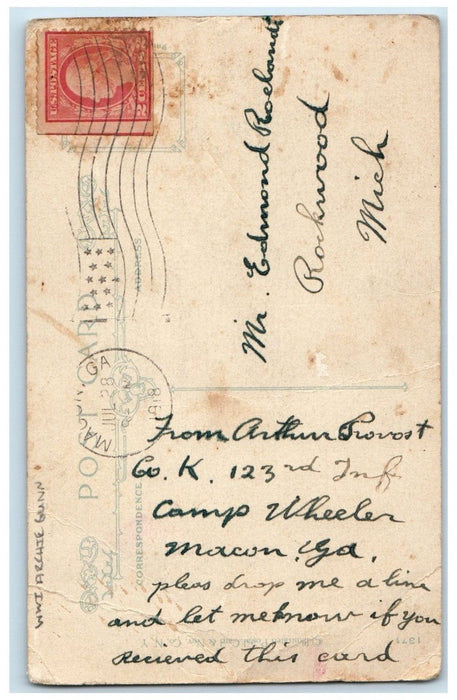 U.S. POSTAGE
2 CENTS 2
MACON, GA
JUL 28
1918
POST CARD
CORRESPONDENCE
ADDRESS
Mr. Edmond Roeland
Rockwood
Mich
From Arthur Provost
Co. K. 123rd Inf
Camp Wheeler
Macon, Ga.
pleas drop me a line
and let me know if you
recieved this card
WWI ARCHIE GUNN
1371
Illustrated Postal Card & Nov. Co. N. Y.